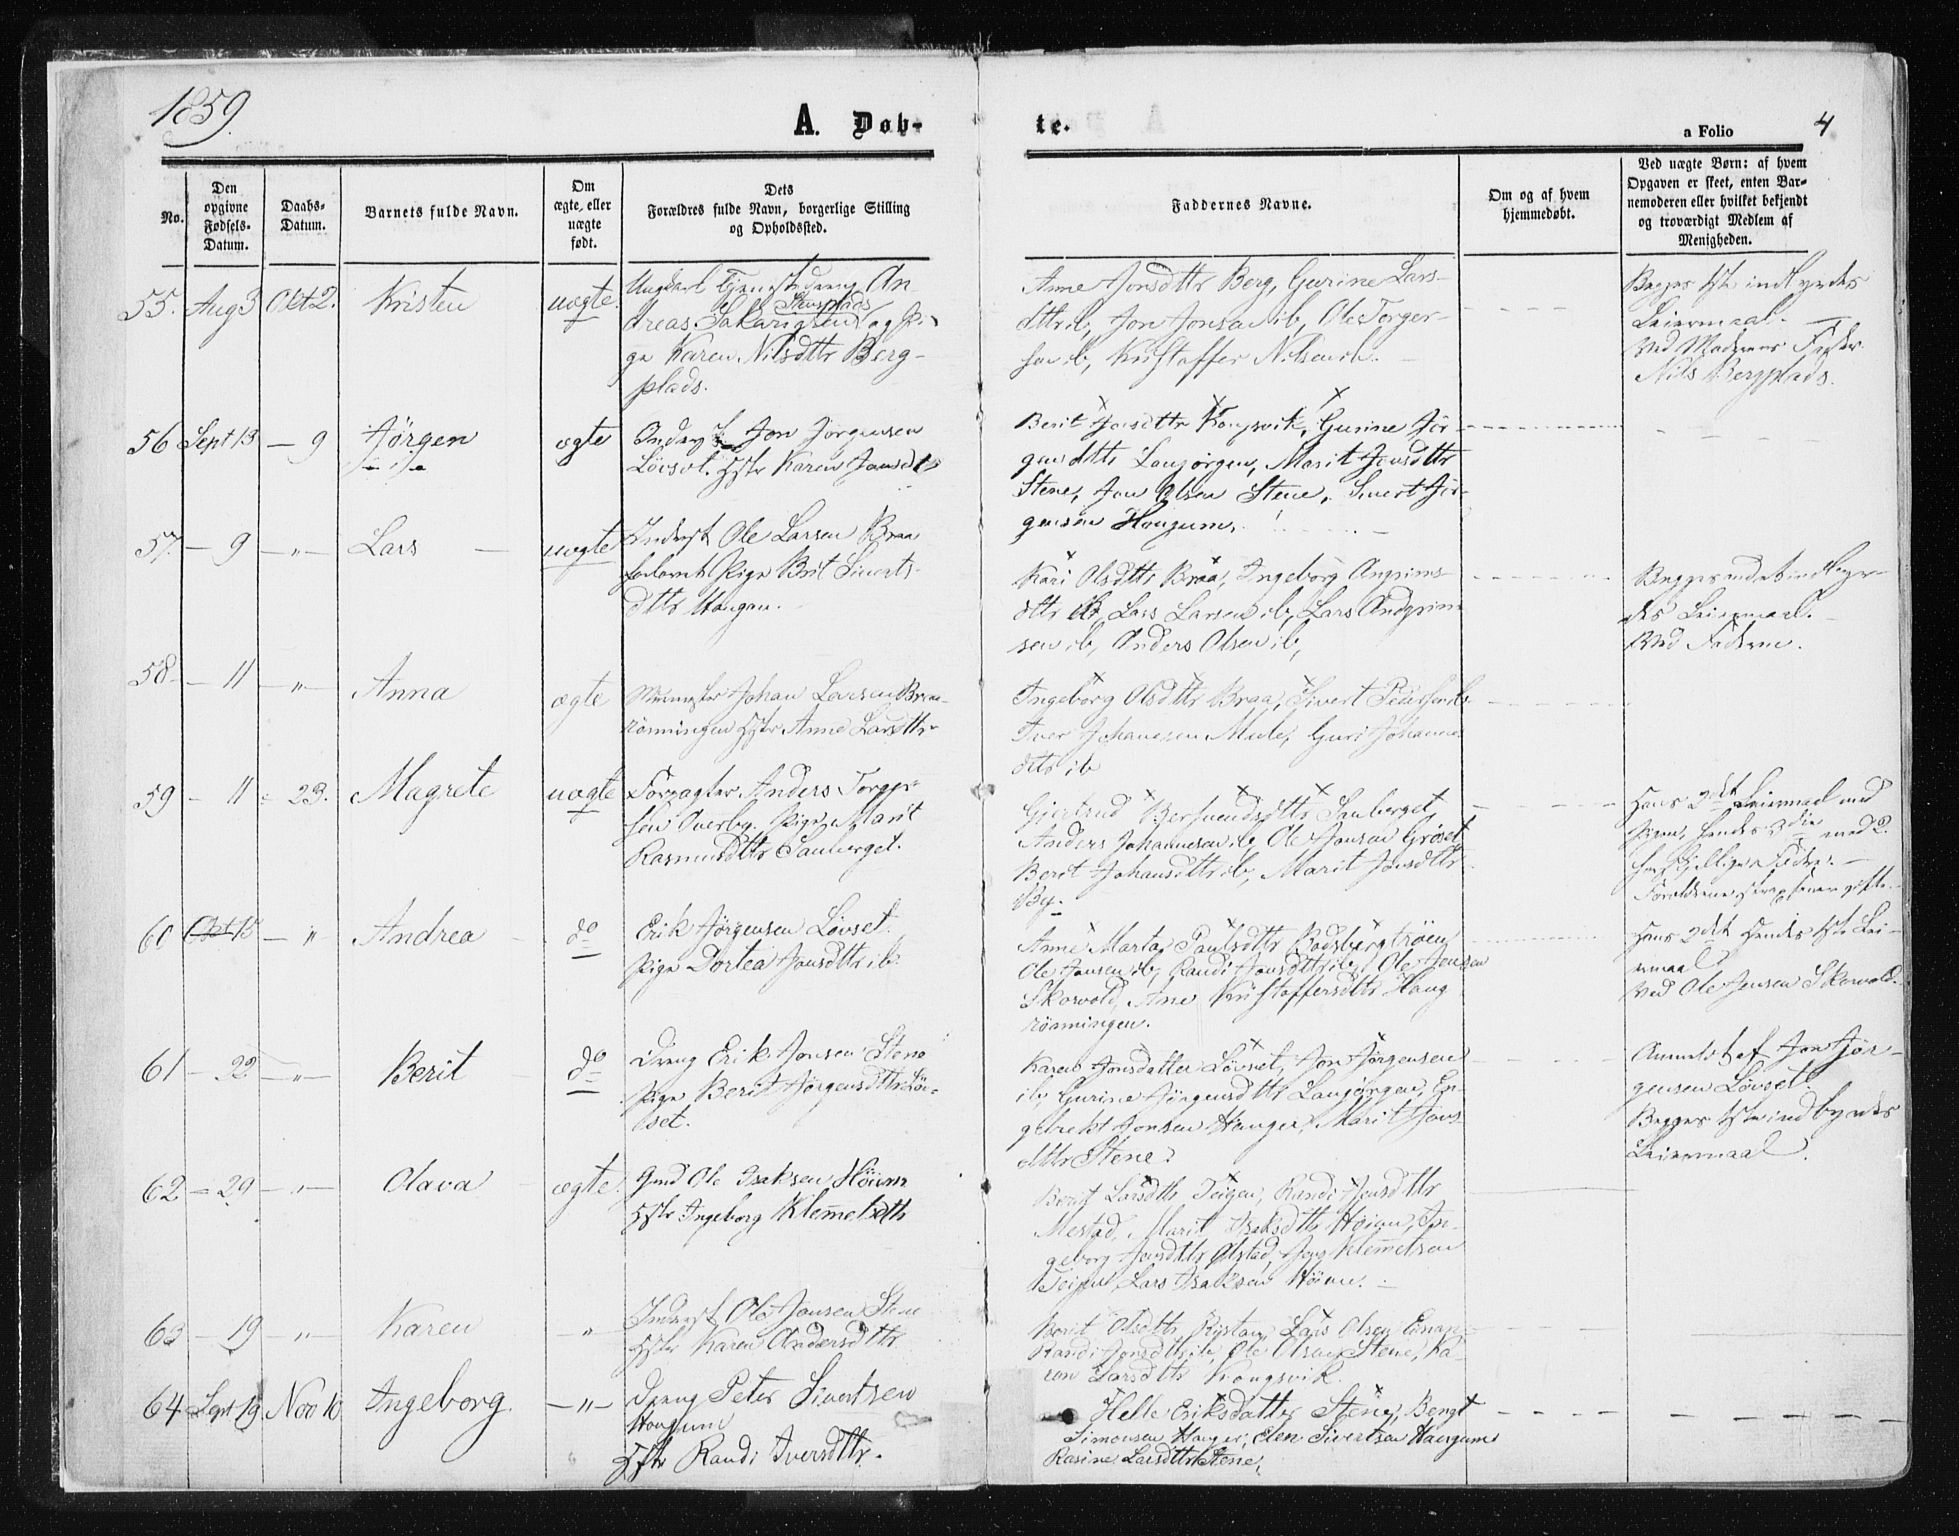 1859.
A. Døb-
te.
a Folio 4
No.
Den opgivne Fødsels-Datum.
Daabs-Datum.
Barnets fulde Navn.
Om ægte eller uægte født.
Dets Forældres fulde Navn, borgerlige Stilling og Opholdssted.
Faddernes Navne.
Om og af hvem hjemmedøbt.
Ved uægte Børn: af hvem Opgaven er skeet, enten Barnemoderen eller hvilket bekjendt og troværdigt Medlem af Menigheden.
55. Aug 3 Okt 2. Kristen uægte
Ungkarl Tjenestedreng An-
dreas Sakarigsen Stensplads og Pi-
ge Karen Nilsdttr Berg-
plads.
Anne Jonsdttr Berg, Gurine Lars-
dttr ib, Jon Jonsen ib, Ole Torger-
sen ib, Kristoffer Nilsen ib.
Begges 1ste indbyrdes
Leiermaal.
Ved Moderens Fader
Nils Bergplads.
56 Sept 13 — 9 Jörgen ægte
Inderst Jon Jörgensen
Lövset. Hstr Karen Jonsdt
Berit Jonsdttr Kongsvik, Gurine Jör-
gensdttr Langörgen, Marit Jonsdttr
Stene, Jon Olsen Stene, Sivert Jör-
gensen Haugum.
57. — 9 — „ — Lars — uægte
Inderst Ole Larsen Braa
forlovet Pige Brit Siverts-
dttr Haugan.
Kari Olsdttr Braa, Ingeborg Angrims-
dttr ib, Lars Larsen ib, Lars Andgrim
sen ib, Anders Olsen ib,
Begges andet indbyr-
des Leiermaal.
Ved Faderen.
58 — 11 — „ — Anna ægte
Johan Larsen Braa-
rönningen Hstr Anne Larsdttr
Ingeborg Olsdttr Braa, Sivert Pedersen ib
Iver Johannesen Mule, Guri Johannes
dttr ib
59 — 11 — 23. Magrete uægte
Forpagter Anders Torger-
sen Overby. Pige Marit
Rasmusdttr Sauberget.
Gjertrud Bersvendsdttr Sauberget,
Anders Johannesen ib, Ole Jonsen Gröset
Berit Johansdttr ib, Marit Jonsdttr
By.
Hans 2det Leiermaal med
Pigen, hendes 3die med 2
forskjellige Fædre. —
60 Okt 15 — „ Andrea do
Erik Jörgensen Lövset.
Pige Dortea Jonsdttr ib.
Anne Marta Paulsdttr Bodsbergtröen
Ole Jonsen ib, Randi Jonsdttr ib, Ole Jensen
Skorvold, Ane Kristoffersdttr Haug
rönningen.
Hans 2det Hendes 1ste Lei-
ermaal
Ved Ole Jensen Skorvold.
61 — 22 — „ — Berit do
Dreng Erik Jonsen Stene
Pige Berit Jörgensdttr Löv-
set.
Karen Jonsdatter Lövset, Jon Jörgensen
ib, Gurine Jörgensdttr Langörgen, En-
gebrekt Jonsen Hanger, Marit Jons
dttr Stene.
Anmeldt af Jon Jör-
gensen Lövset.
Begges 1ste indbyrdes
Leiermaal.
62 — 29 — „ — Olava ægte.
Gmd Ole Isaksen Höium
Hstr Ingeborg Klemetsdttr
Berit Larsdttr Teigen, Randi Jonsdttr
Mestad, Marit Isaksdttr Höium, In-
geborg Jonsdttr Olstad, Jens Klemetsen
Teigen, Lars Isaksen Höium.
63 — 19 — „ — Karen — „
Inderst Ole Jonsen Stene
Hstr Karen Andersdttr
Berit Olsdttr Rystan, Lars Olsen
Randi Jonsdttr ib, Ole Olsen Stene, Ka-
ren Larsdttr Kongsvik.
64 Sept 19 Nov 10 Ingeborg. — „ —
Dreng Peter Sivertsen
Haugum
Hstr Randi Iversdttr.
Helle Eriksdatter Stene, Bengt
Simonsen Hanger, Elen Sivertsen Haugum
Rasine Larsdttr Stene,